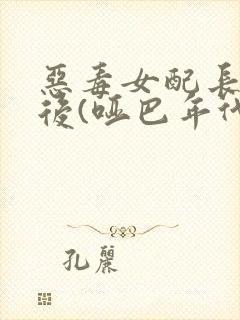 惡毒女配長
後(啞巴年代
孔麗